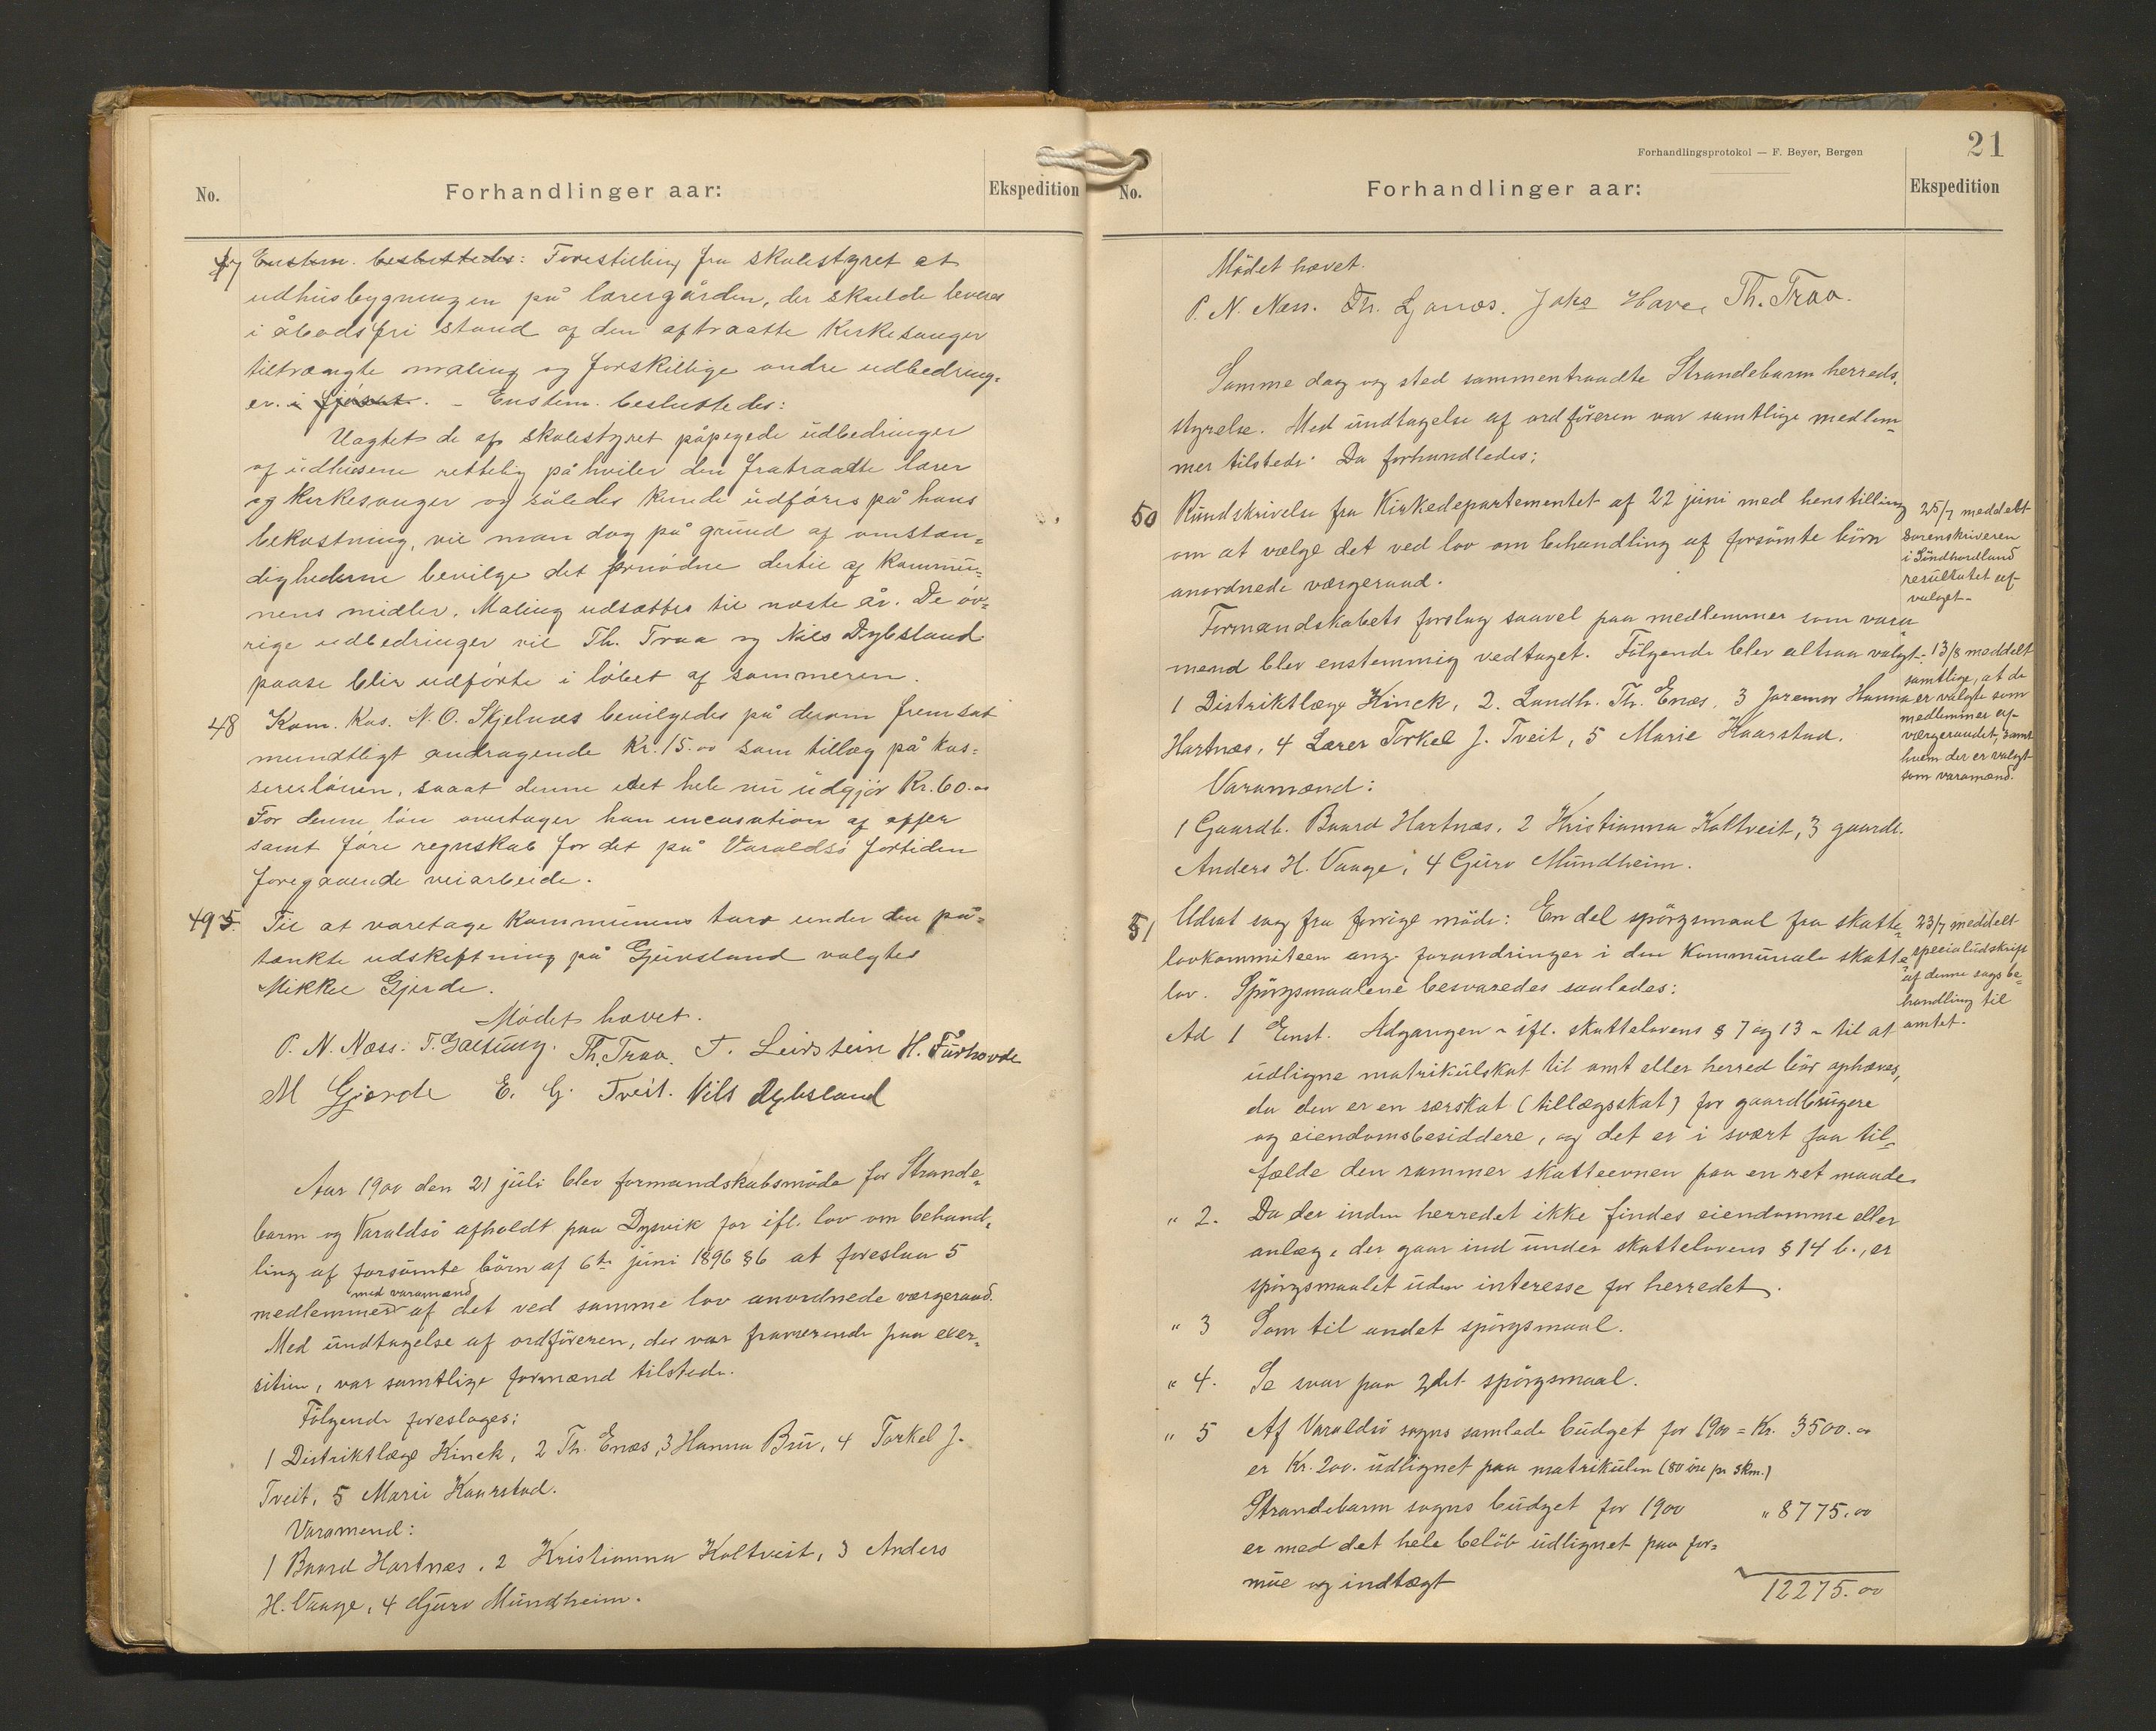 No.
Forhandlinger aar:
Ekspedition
47 Enstem. besluttedes: Forestilling fra skolestyret at
udhusbygningen på lærergården, der skulde leveres
i åbodsfri stand af den aftraatte Kirkesanger
tiltrængte maling og forskillige andre udbedring-
er. i fjøset. - Enstem. besluttedes:
Uagtet de af skolestyret påpegede udbedringer
af udhusene rettelig påhviler den fratraadte lærer
og Kirkesanger og således kunde udføres på hans
bekostning, vil man dog på grund af omstæn-
dighederne bevilge det fornødne dertil af Kommu-
nens midler. Maling udsættes til næste år. De øv-
rige udbedringer vil Th. Traa og Nils Dybsland
paase blir udførte i løbet af sommeren.
48 Kom. Kas. N. O. Skjelnæs bevilgedes på derom fremsat
mundtligt andragende Kr. 15.00 som tillæg på kas-
sererlønen, saaat denne i det hele nu udgjør Kr. 60.00
For denne løn overtager han incasation af offer
samt føre regnskab for det på Varaldsø fortiden
foregaaende veiarbeide.
49 5. Til at varetage Kommunens tarv under den på-
tænkte udskiftning på Gjeirsland valgtes
Mikkel Gjerde.
Mødet hævet.
P. N. Næss. T. Galtung. Th. Traa. T. Leirstein H. Furhovde
M Gjerde E. G. Tveit. Nils Dybsland
Aar 1900 den 21 juli blev formandskabsmøde for Strande-
barm og Varaldsø afholdt paa Dysvik for ifl. lov om behand-
ling af forsømte børn af 6te juni 1896 §6 at foreslaa 5
med varamænd
medlemmer af det ved samme lov anordnede værgeraad.
Med undtagelse af ordføreren, der var fraværende paa exer-
sitien, var samtlige formænd tilstede.
Følgende foreslages:
1 Distriktlæge Kinck, 2 Th. Enæs, 3 Hanna Bru, 4 Torkel J.
Tveit, 5 Marie Kaarstad.
Varamend:
1 Baard Hartnæs, 2 Kristianna Koltveit, 3 Anders
H. Vaage, 4 Guro Mundheim.
21
Forhandlingsprotokol — F. Beyer, Bergen
No.
Forhandlinger aar:
Ekspedition
Mødet hævet.
P. N. Næss. Th. Ljonæs. Jaks Have, Th. Traa.
Samme dag og sted sammentraadte Strandebarm herreds-
styrelse. Med undtagelse af ordføreren var samtlige medlem-
mer tilstede. Da forhandledes;
50 Rundskrivelse fra Kirkedepartementet af 22 juni med henstilling
om at vælge det ved lov om behandling af forsømte børn
anordnede værgeraad.
25/7 meddelt
Sorenskriveren
i Søndhordland
resultatet af
valget.
Formandskabets forslag saavel paa medlemmer som vara
mænd blev enstemmig vedtaget. Følgende blev altsaa valgt:
1 Distriktlæge Kinck, 2. Landh. Th. Enæs, 3 Jaremor Hanna
Hartnæs, 4 Lærer Torkel J. Tveit, 5 Marie Kaarstad.
13/8 meddelt
samtlige, at de
er valgte som
medlemmer af
værgeraadet, samt
hvem der er valgt
som varamænd.
Varamænd:
1 Gaardb. Baard Hartnæs, 2 Kristianna Koltveit, 3 gaardb.
Anders H. Vaage, 4 Guro Mundheim.
51 Udsat sag fra forrige møde: En del spørgsmaal fra skatte-
lovkommiteen ang. forandringer i den kommunale skatte-
lov. Spørgsmaalene besvaredes saaledes:
23/7 meddelt
specialudskrift
af denne sags be-
handling til
amtet.
Ad 1 Enst. Adgangen - ifl. skattelovens § 7 og 13 - til at
udligne matrikulskat til amt eller herred bør ophæves,
da den er en særskat (tillægsskat) for gaardbrugere
og eiendomsbesiddere, og det er i svært faa til-
fælde den rammer skatteevnen paa en ret maade.
" 2. Da der inden herredet ikke findes eiendomme eller
anlæg, der gaar ind under skattelovens § 14 b., er
spørgsmaalet uden interesse for herredet.
" 3 Som til andet spørgsmaal.
" 4. Se svar paa 2det spørgsmaal.
" 5 Af Varaldsø sogns samlede budget for 1900 = Kr. 3500.00
er Kr. 200. udlignet paa matrikulen (80 øre pr skm.)
Strandebarm sogns budget for 1900 " 8775.00
er med det hele beløb udlignet paa for-
mue og indtægt
12275.00